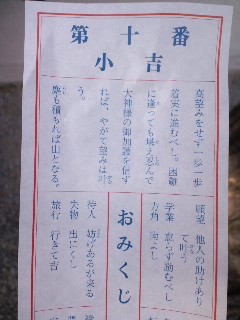 第十番
小吉
高望みをせず一歩一歩
着実に進むべし。困難
に逢っても堪え忍んで
大神様の御加護を信ず
れば、やがて望みは叶
う。
塵も積もれば山となる。
おみくじ
願望 他人の助けあり
て叶う
学業 怠らず励むべし
方角 南よし
待人 妨げあるが来る
失物 出にくし
旅行 行きて吉